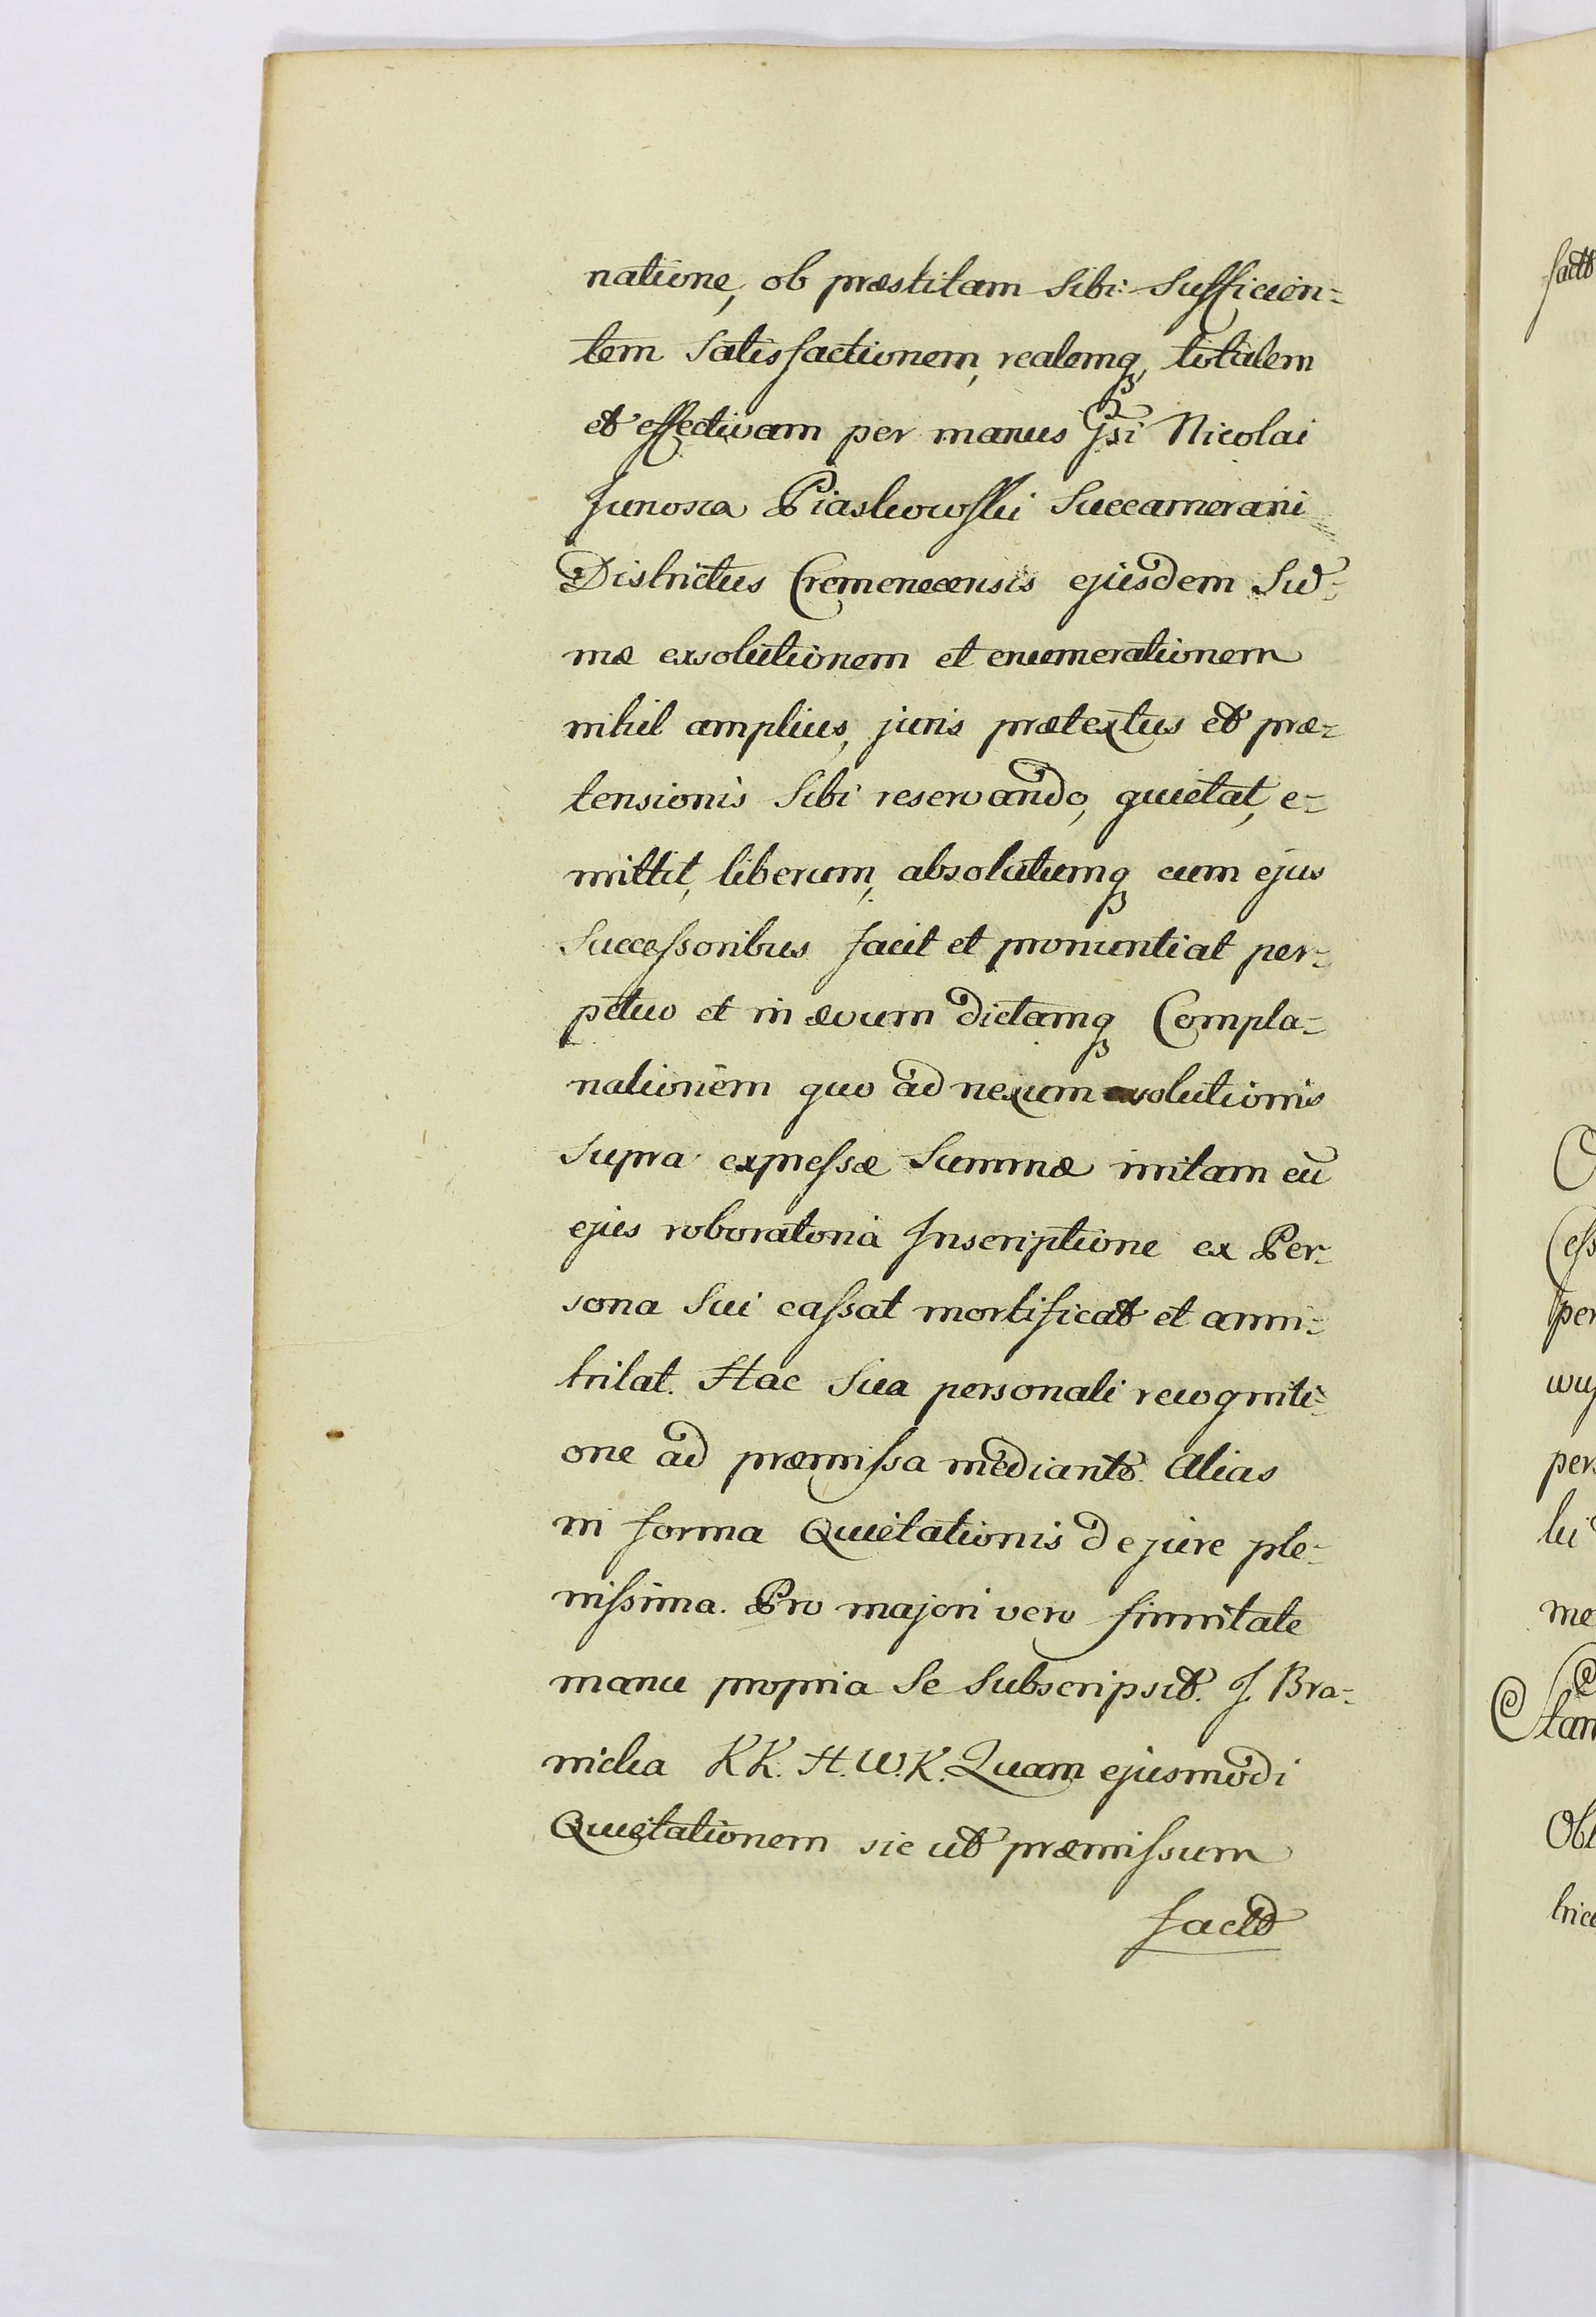 natione, ob præstitam Sibi Sufficien=
tem Satisfactionem, realemq3, totalem
et effectivam per manus Gsi Nicolai
Junosza Piaskowski Succamerani
Districtus Cremenecensis ejusdem Su=
mæ exsolutionem et enumerationem
nihil amplius, juris prætextus et præ=
tensionis Sibi reservando, quietat, e=
mittit, liberum, absolutumq3 cum ejus
Successoribus facit et pronuntiat per=
petuo et in ævum dictamq3 Compla=
nationem quo ad nexum exsolutionis
Supra expressæ Summæ initam cũ
ejus roboratoria Inscriptione ex Per=
sona Sui cassat mortificat et anni=
hilat. Hac Sua personali recogniti=
one ad præmissa mediante. Alias
in forma Quietationis de jure ple=
nissima. Pro majori vero firmitate
manu propria Se Subscripsit. J. Bra=
nicka K K. H. W. K. Quam ejusmodi
Quietationem sic ut præmissum
facto